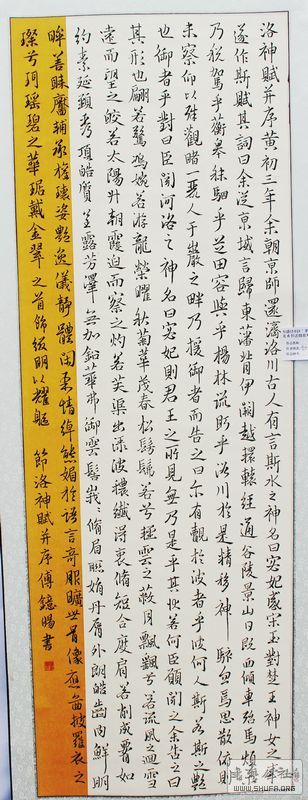 洛神賦并序黃初三年余朝京師還濟洛川古人有言斯水之神名曰宓妃感宋玉對楚王神女之
遂作斯賦其詞曰余從京域言歸東藩背伊闕越轘轅經通谷陵景山日既西傾車殆馬煩
乃稅駕乎蘅皋秣駟乎芝田容與乎楊林流眄乎洛川於是精移神駭忽焉思散俯則
未察仰以殊觀睹一麗人于巖之畔乃援御者而告之曰尒有覿於彼者乎彼何人斯若斯之艷
也御者乎對曰臣聞河洛之神名曰宓妃則君王之所見無乃是乎其狀若何臣願聞之余告之曰
其形也翩若驚鴻婉若游龍榮曜秋菊華茂春松髣髴若兮輕雲之蔽月飄颻兮若流風之迴雪
遠而望之皎若太陽升朝霞迫而察之灼若芙渠出淥波穠纖得衷脩短合度肩若削成腰如
約素延頸秀項皓質呈露芳澤無加鉛華弗御雲髻峩峩脩眉聯娟丹脣外朗皓齒內鮮明
眸善睞靨輔承權瓌姿艷逸儀靜體閑柔情綽態媚於語言奇服曠世骨像應圖披羅衣之
璨兮珥瑤碧之華琚戴金翠之首飾綴明以耀軀 節洛神賦并序傅鐿賜書
WWW.SHUFA.ORG